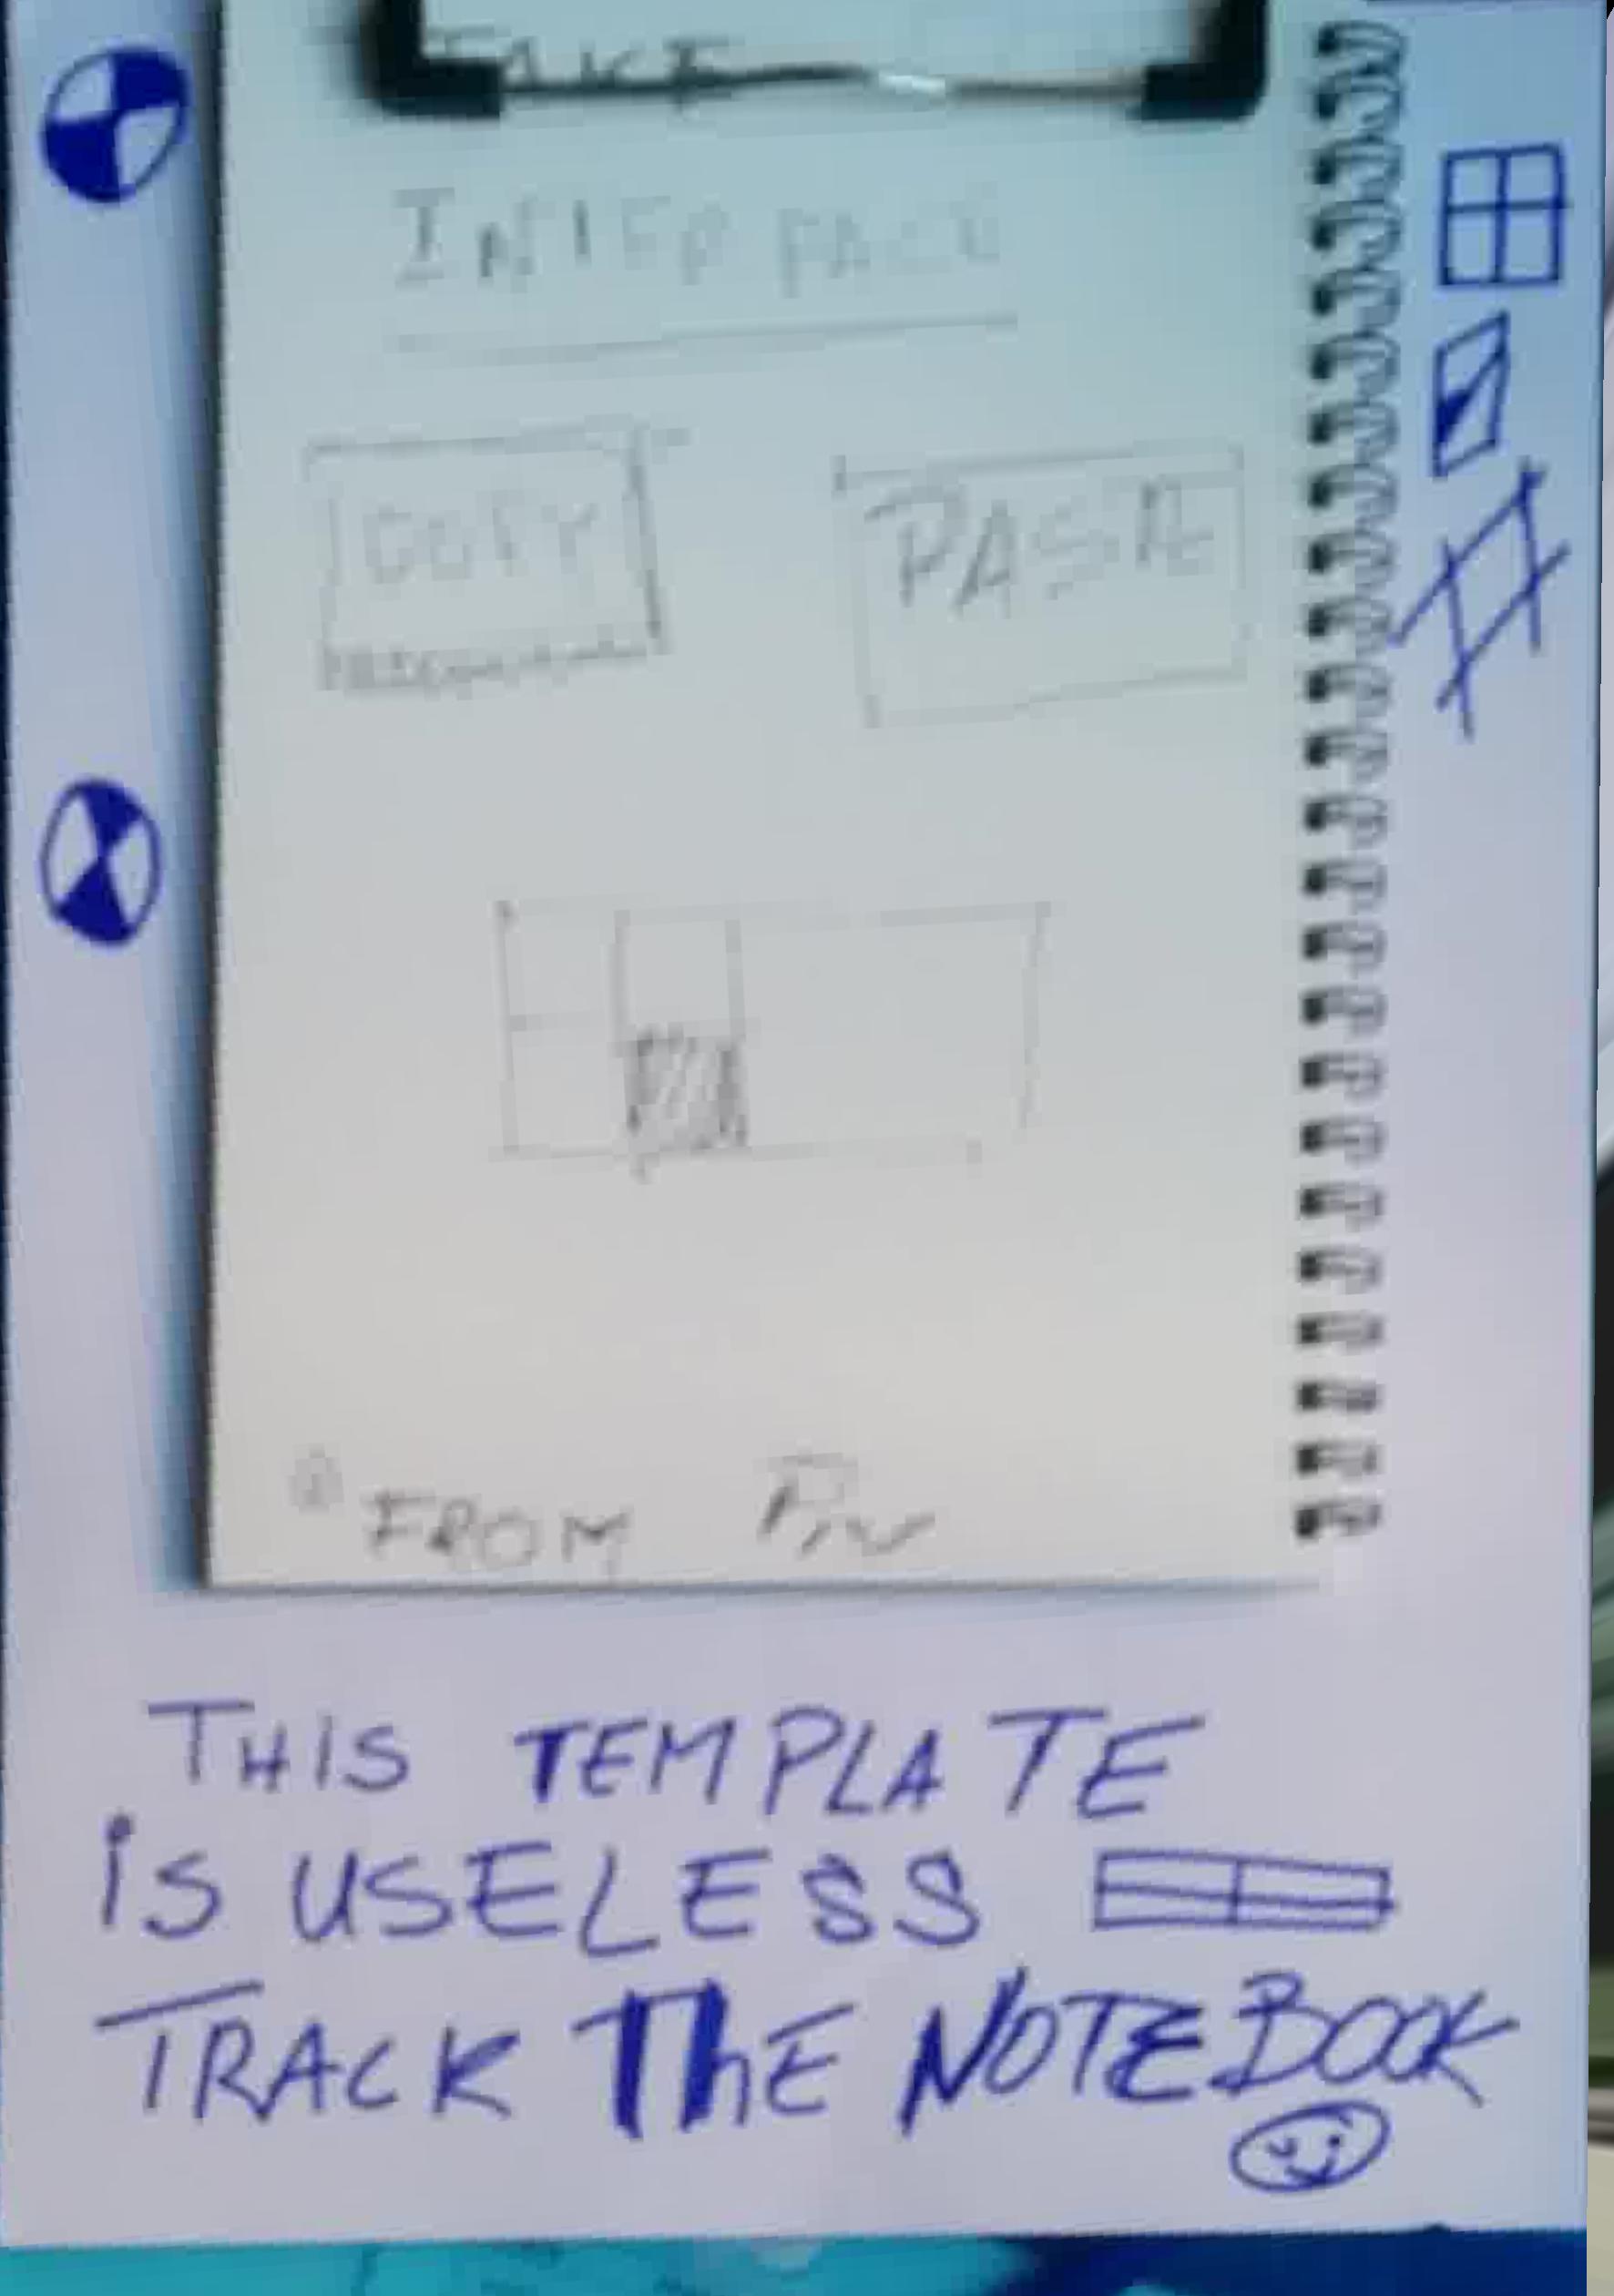 TAKE
INTERFACE
COPY PASTE
FROM
THIS TEMPLATE
is USELESS
TRACK ThE NOTEBOOK